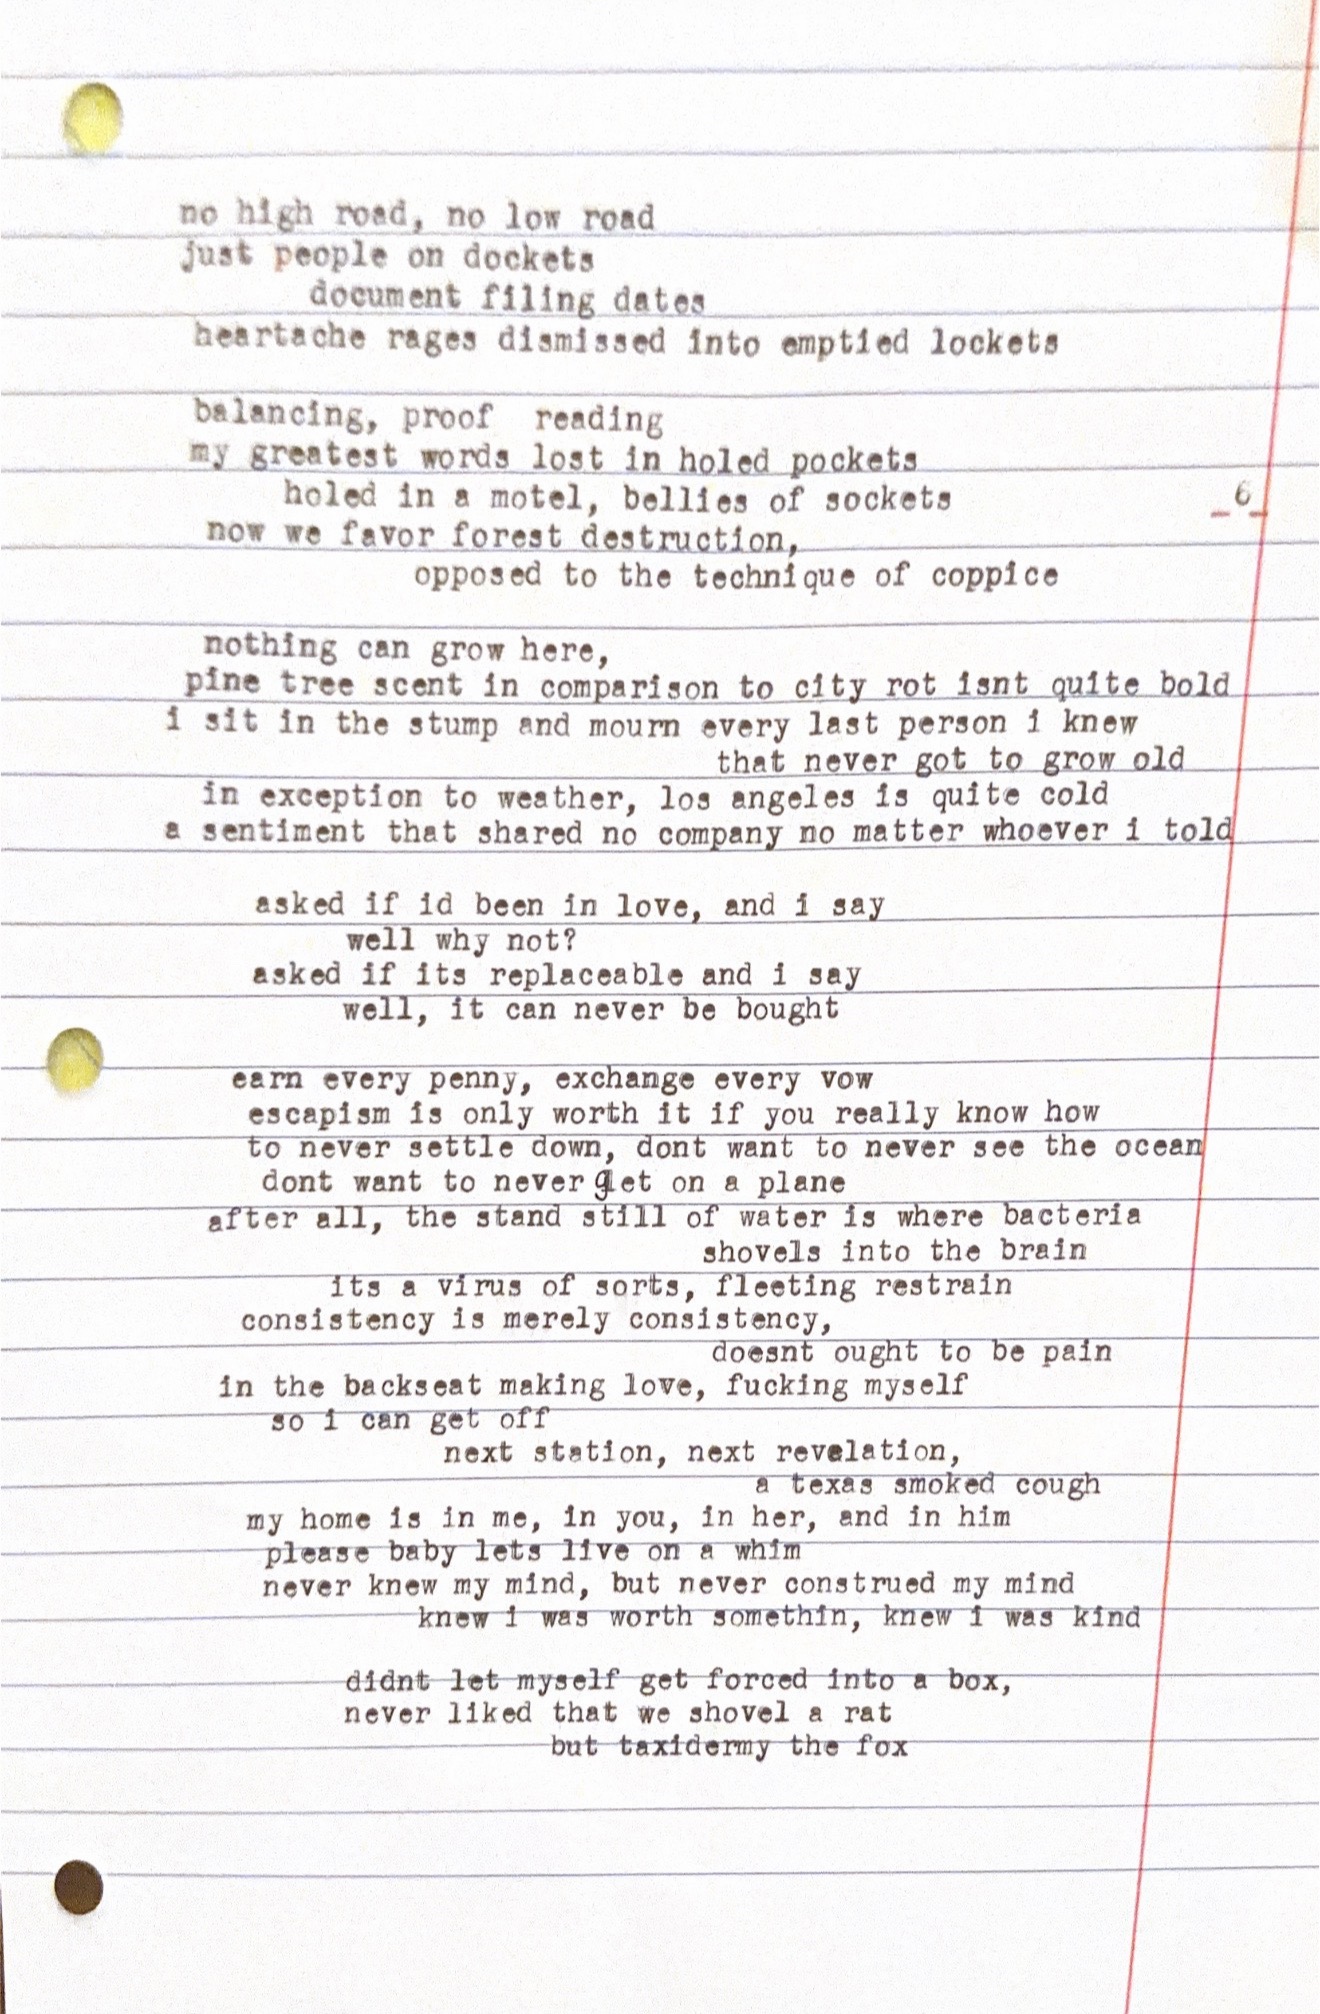 no high road, no low road
just people on dockets
document filing dates
heartache rages dismissed into emptied lockets
balancing, proof reading
my greatest words lost in holed pockets
holed in a motel, bellies of sockets
_6_
now we favor forest destruction,
opposed to the technique of coppice
nothing can grow here,
pine tree scent in comparison to city rot isnt quite bold
i sit in the stump and mourn every last person i knew
that never got to grow old
in exception to weather, los angeles is quite cold
a sentiment that shared no company no matter whoever i told
asked if id been in love, and i say
well why not?
asked if its replaceable and i say
well, it can never be bought
earn every penny, exchange every vow
escapism is only worth it if you really know how
to never settle down, dont want to never see the ocean
dont want to never get on a plane
after all, the stand still of water is where bacteria
shovels into the brain
its a virus of sorts, fleeting restrain
consistency is merely consistency,
doesnt ought to be pain
in the backseat making love, fucking myself
so i can get off
next station, next revelation,
a texas smoked cough
my home is in me, in you, in her, and in him
please baby lets live on a whim
never knew my mind, but never construed my mind
knew i was worth somethin, knew i was kind
didnt let myself get forced into a box,
never liked that we shovel a rat
but taxidermy the fox